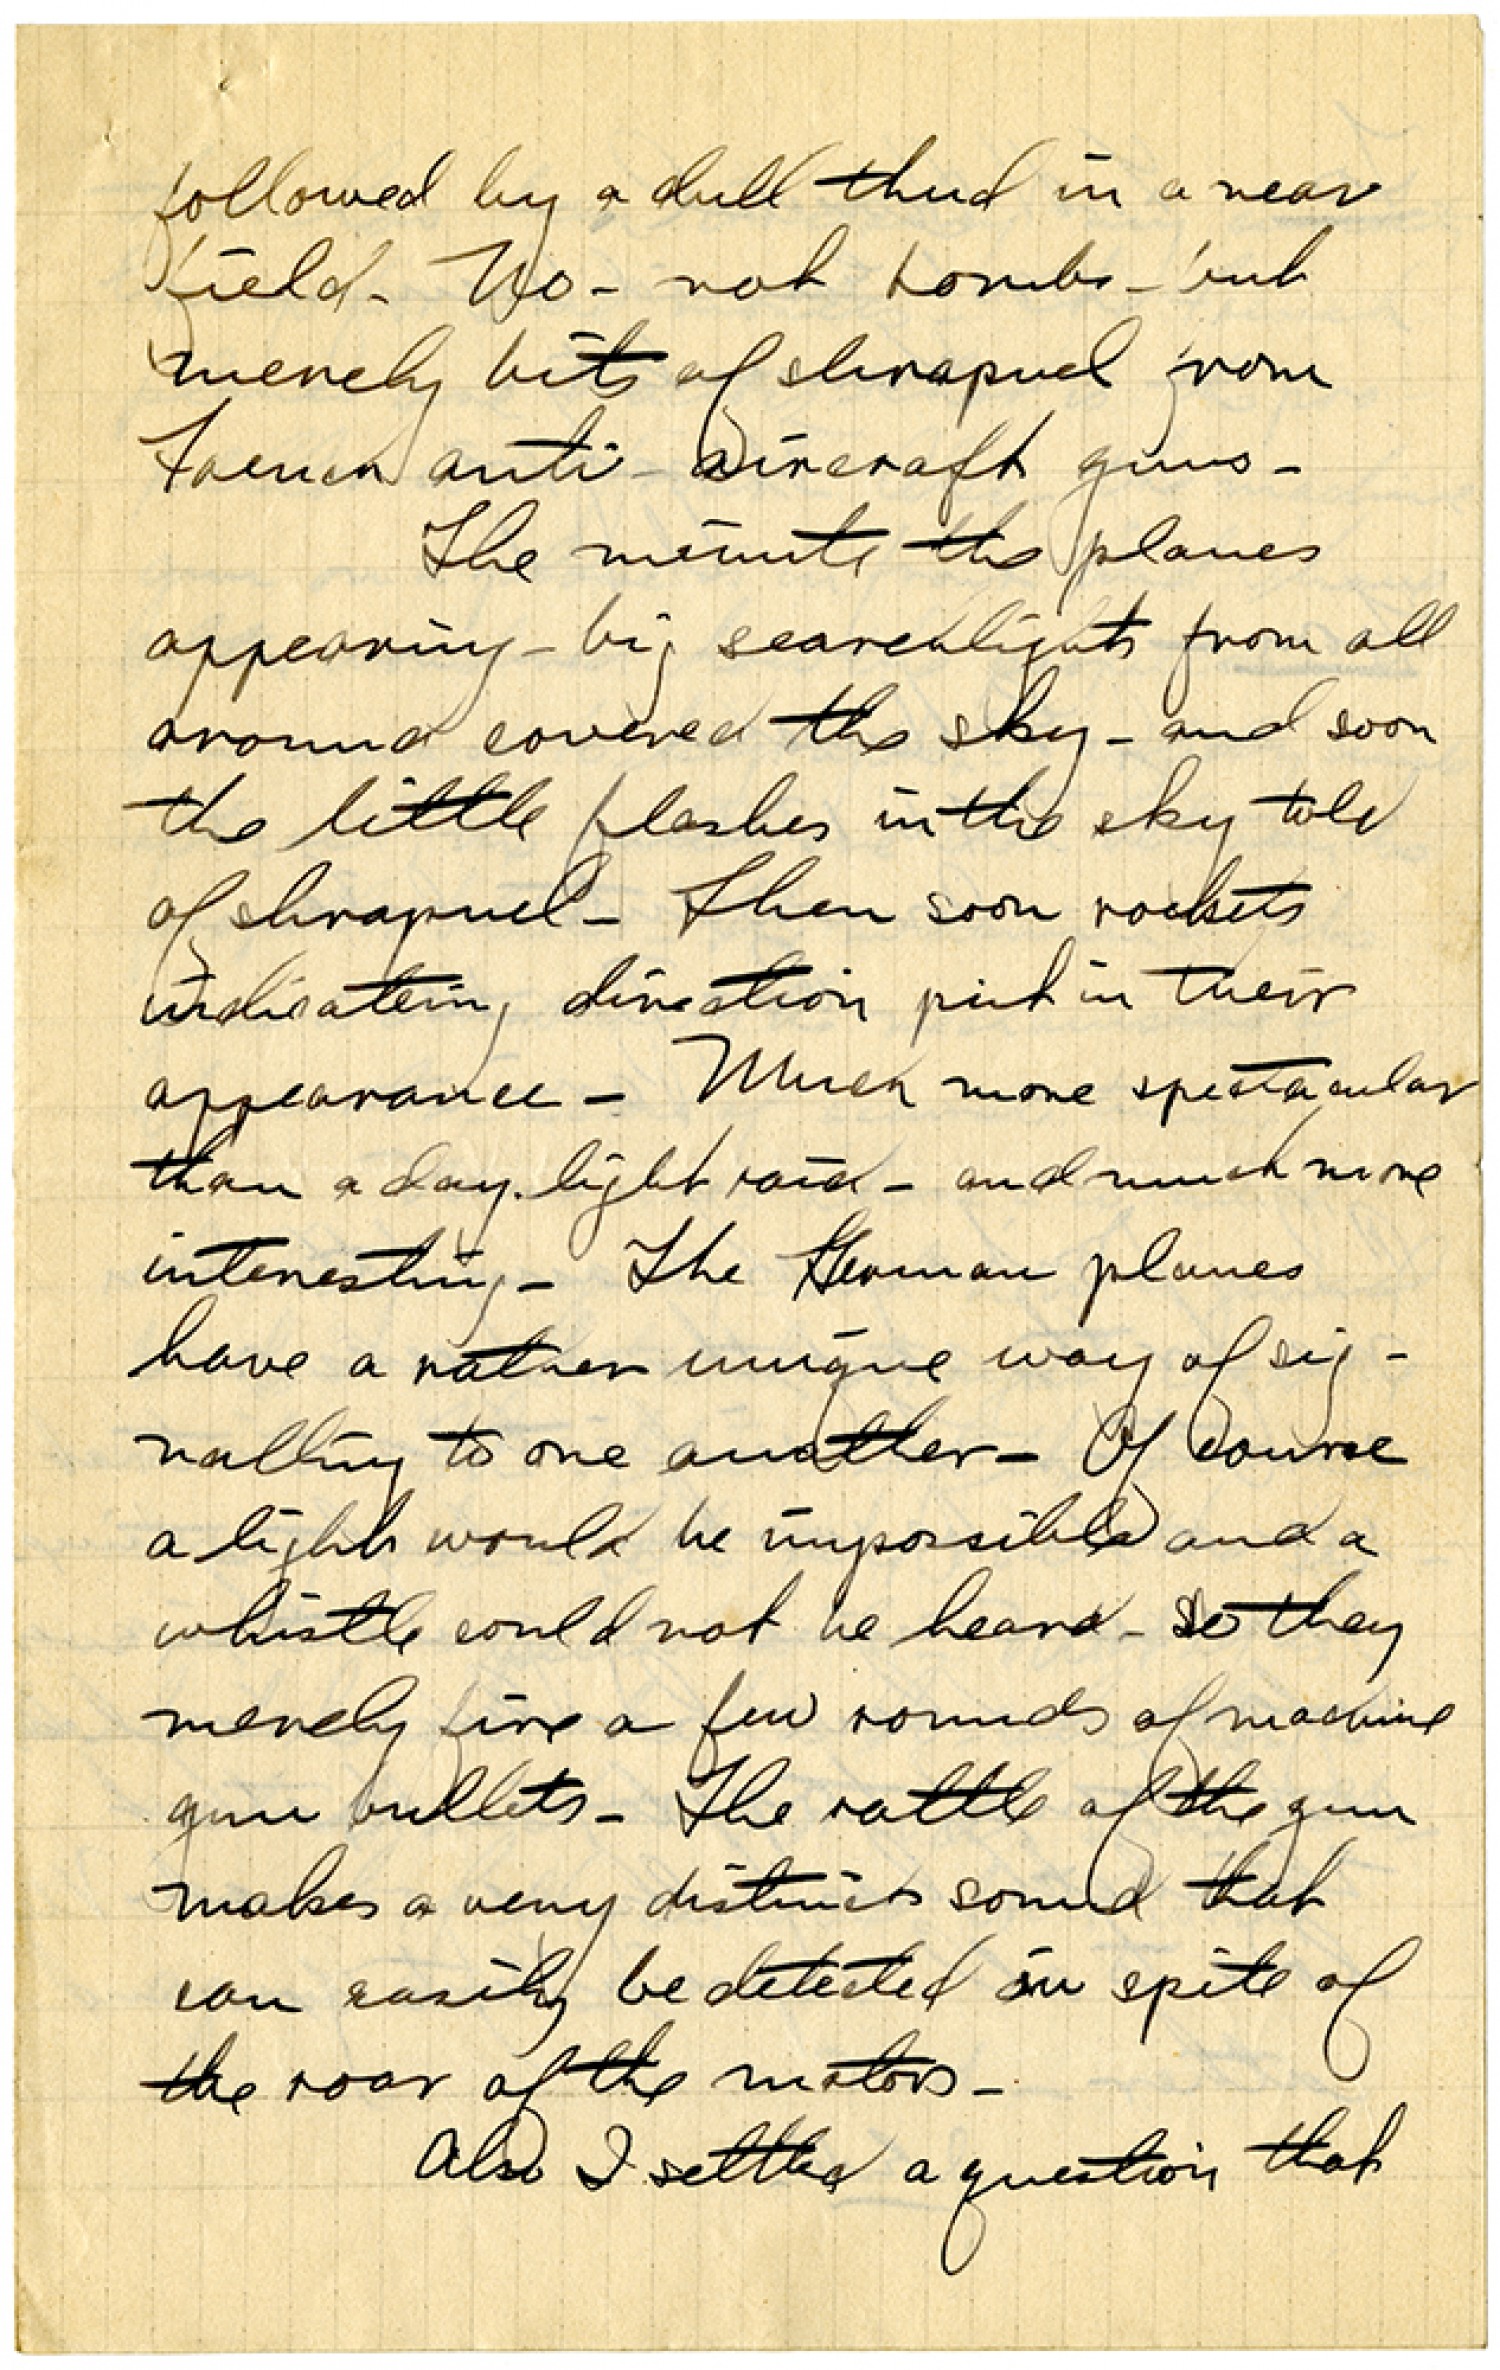 followed by a dull thud in a near
field - No - not bombs - but
merely bits of shrapnel from
French anti - aircraft guns -
The minute the planes
appearing - big searchlights from all
around covered the sky - and soon
the little flashes in the sky told
of shrapnel - Then soon rockets
indicating direction put in their
appearance - Much more spectacular
than a day-light raid - and much more
interesting - The German planes
have a rather unique way of sig -
nalling to one another - Of course
a light would be impossible and a
whistle could not be heard - So they
merely fire a few rounds of machine
gun bullets - The rattle of the gun
makes a very distinct sound that
can easily be detected in spite of
the roar of the motors -
Also I settled a question that